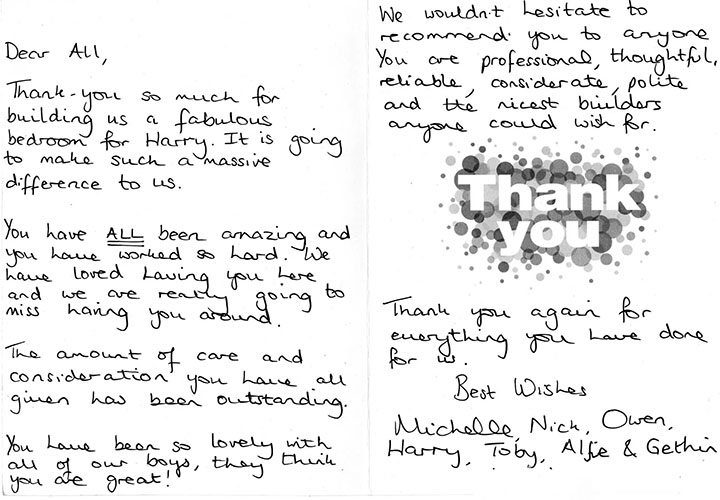 Dear All,
Thank-you so much for
building us a fabulous
bedroom for Harry. It is going
to make such a massive
difference to us.
You have ALL been amazing and
you have worked so hard. We
have loved having you here
and we are really going to
miss having you around.
The amount of care and
consideration you have all
given has been outstanding.
You have been so lovely with
all of our boys, they think
you are great!
We wouldn't hesitate to
recommend you to anyone
You are professional, thoughtful,
reliable, considerate, polite
and the nicest builders
anyone could wish for.
Thank
you
Thank you again for
everything you have done
for us.
Best Wishes
Michelle, Nick, Owen,
Harry, Toby, Alfie & Gethin